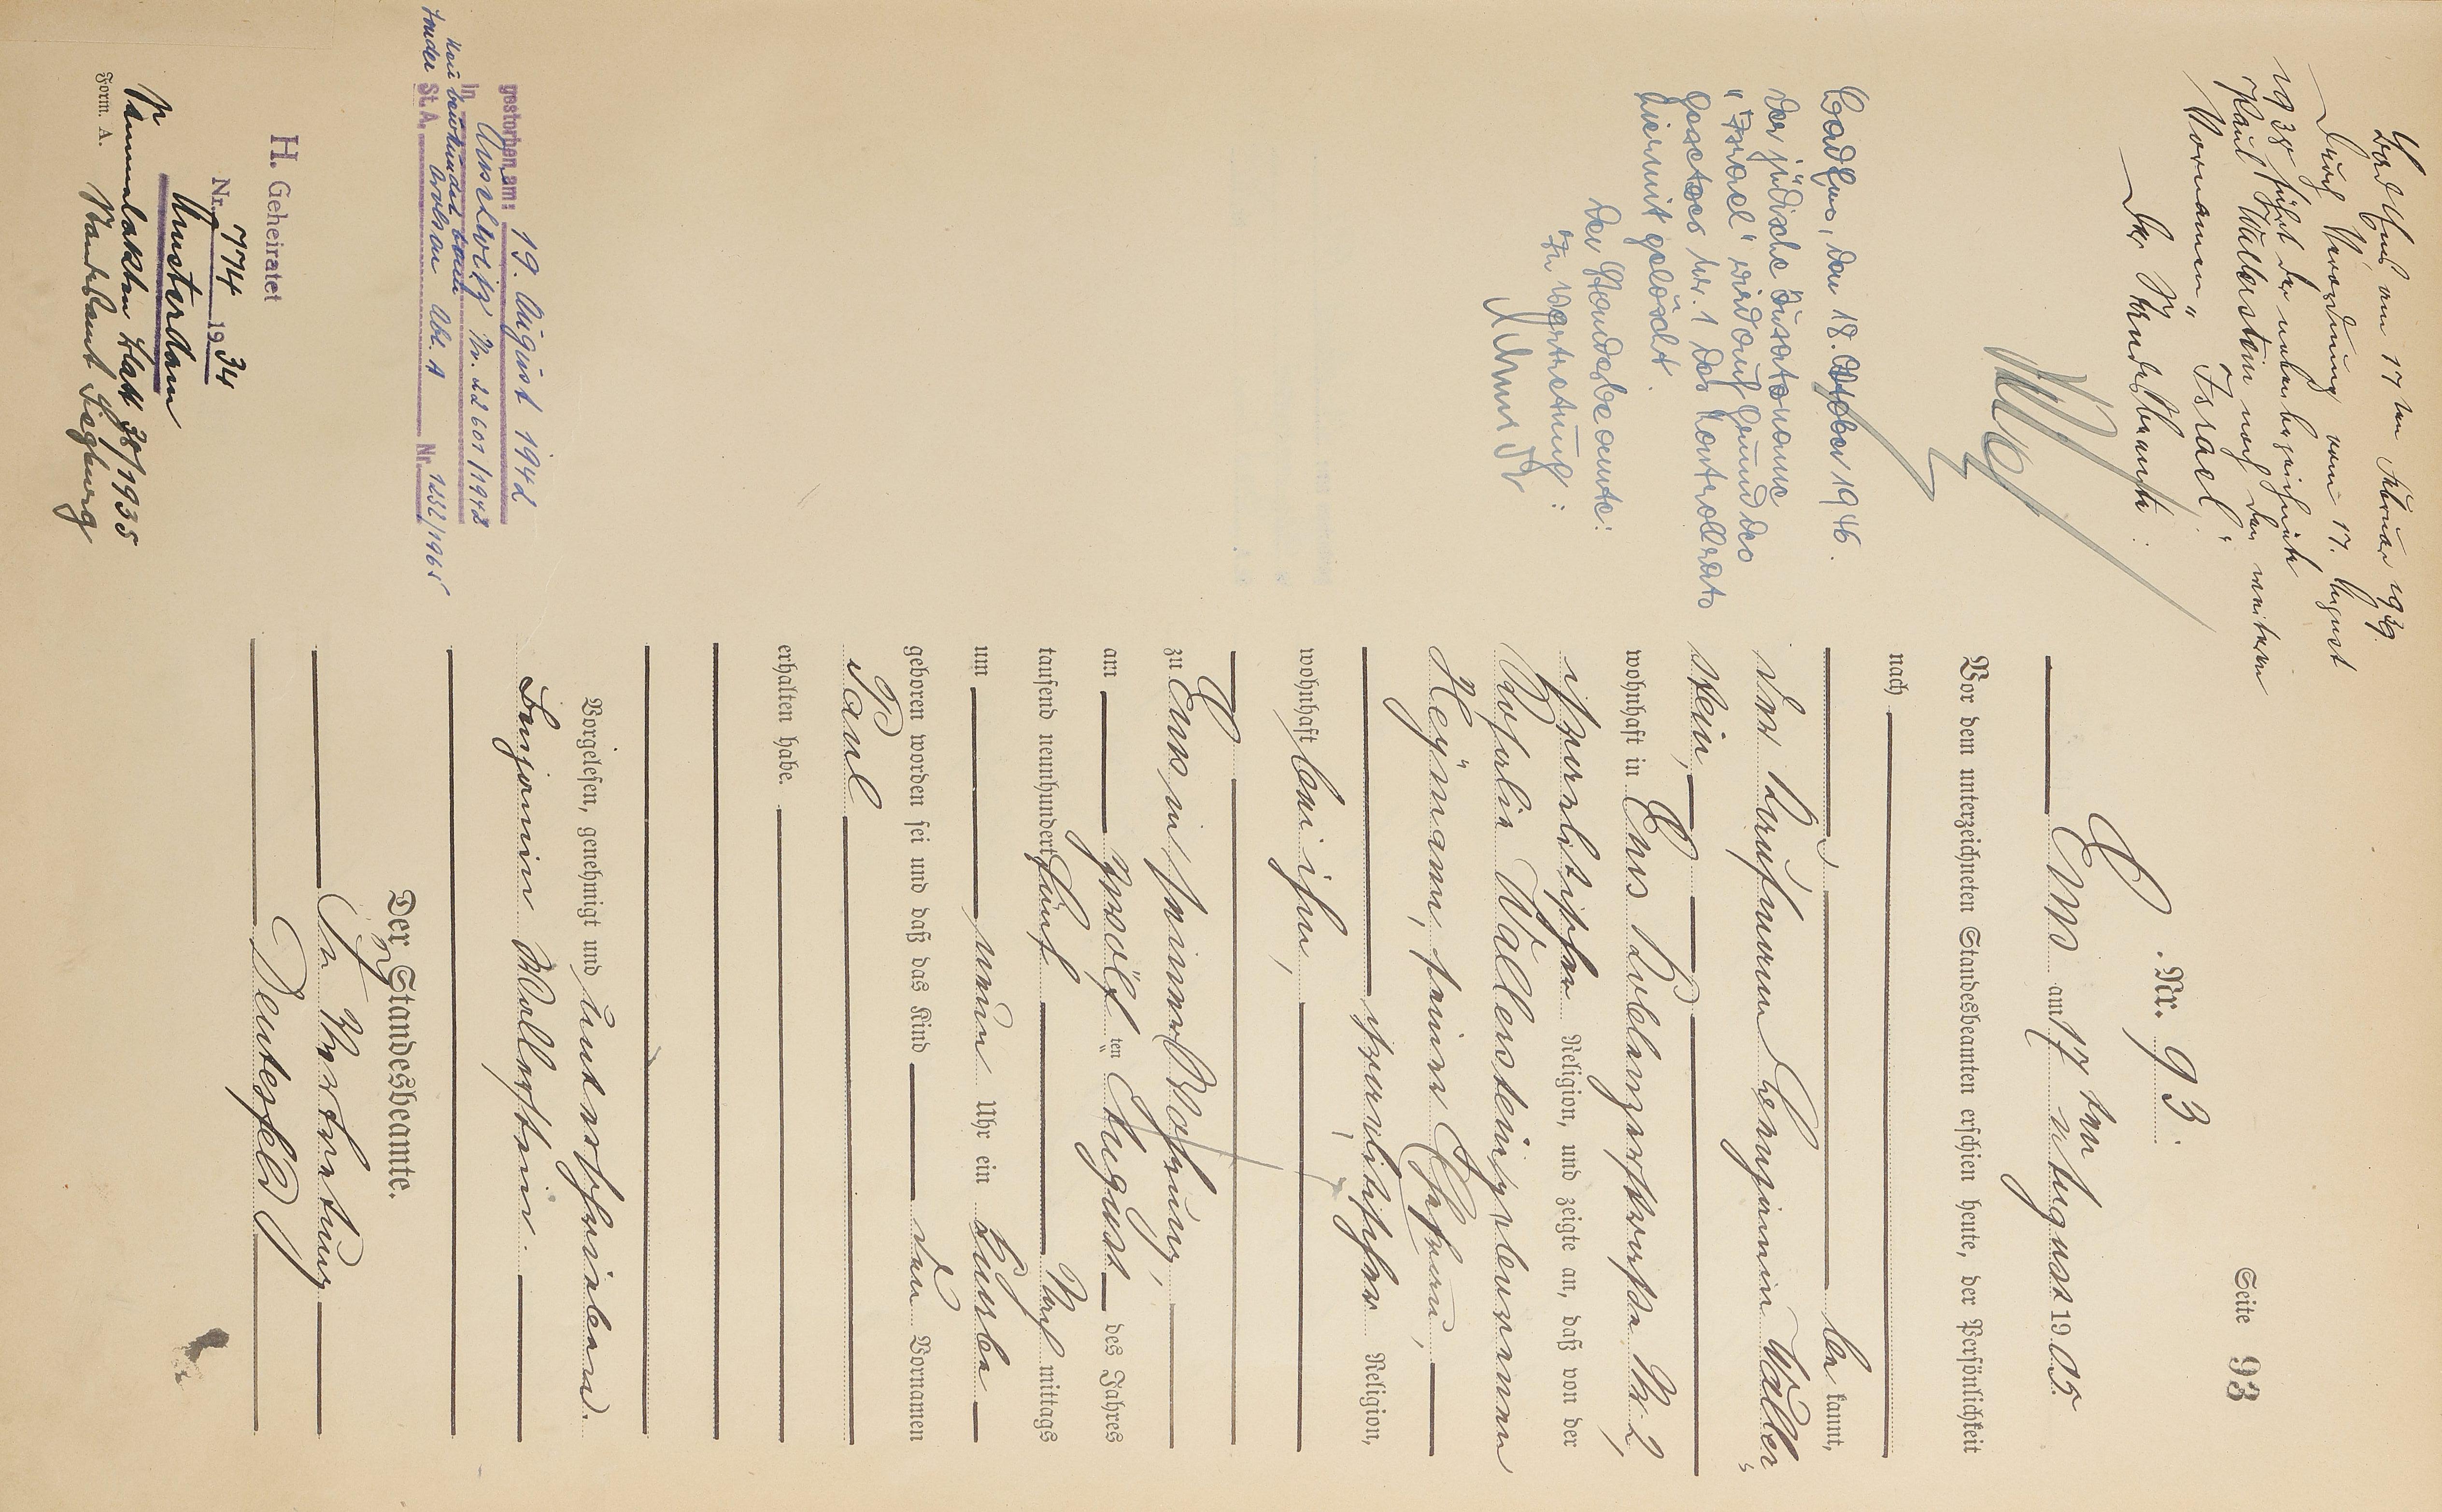 Seite 93
Nr. 93.
Ems am 17 ten August 1905.
Vor dem unterzeichneten Standesbeamten erschien heute, der Persönlichkeit
nach
be kannt,
der Kaufmann Benjamin Waller-
stein,
wohnhaft in Ems Coblenzerstraße Nr. 2,
israelitischer Religion, und zeigte an, daß von der
Rosalie Wallerstein geborenen
Heymann, seiner Ehefrau,
israelitischer Religion,
wohnhaft bei ihm,
zu Ems in seiner Wohnung,
am zwölf ten August des Jahres
tausend neunhundert fünf Nach mittags
um neun Uhr ein Knabe
geboren worden sei und daß das Kind den Vornamen
Paul
erhalten habe.
Vorgelesen, genehmigt und unterschrieben.
Benjamin Wallerstein.
Der Standesbeamte.
In Vertretung
Deutesfeld
Bad Ems am 17 ten Februar 1939.
Durch Verordnung vom 17. August
1938 führt der nebenbezeichnete
Paul Wallerstein noch den weiteren
Vornamen „Israel“
Der Standesbeamte:
Bad Ems, den 18. Oktober 1946.
Der jüdische Zusatzname
„Israel“ wird auf Grund des
Gesetzes Nr. 1 des Kontrollrats
hiermit gelöscht.
Der Standesbeamte:
In Vertretung:
Schmidt
gestorben am: 19. August 1942
in Auschwitz Nr. 22601/1942
neu beurkundet beim
Sonder St. A. Arolsen Abt. A Nr. 1232/1965
H. Geheiratet
Nr. 774 1934
Amsterdam
Sammelakten Blatt 38/1935
Standesamt Siegburg
Form. A.